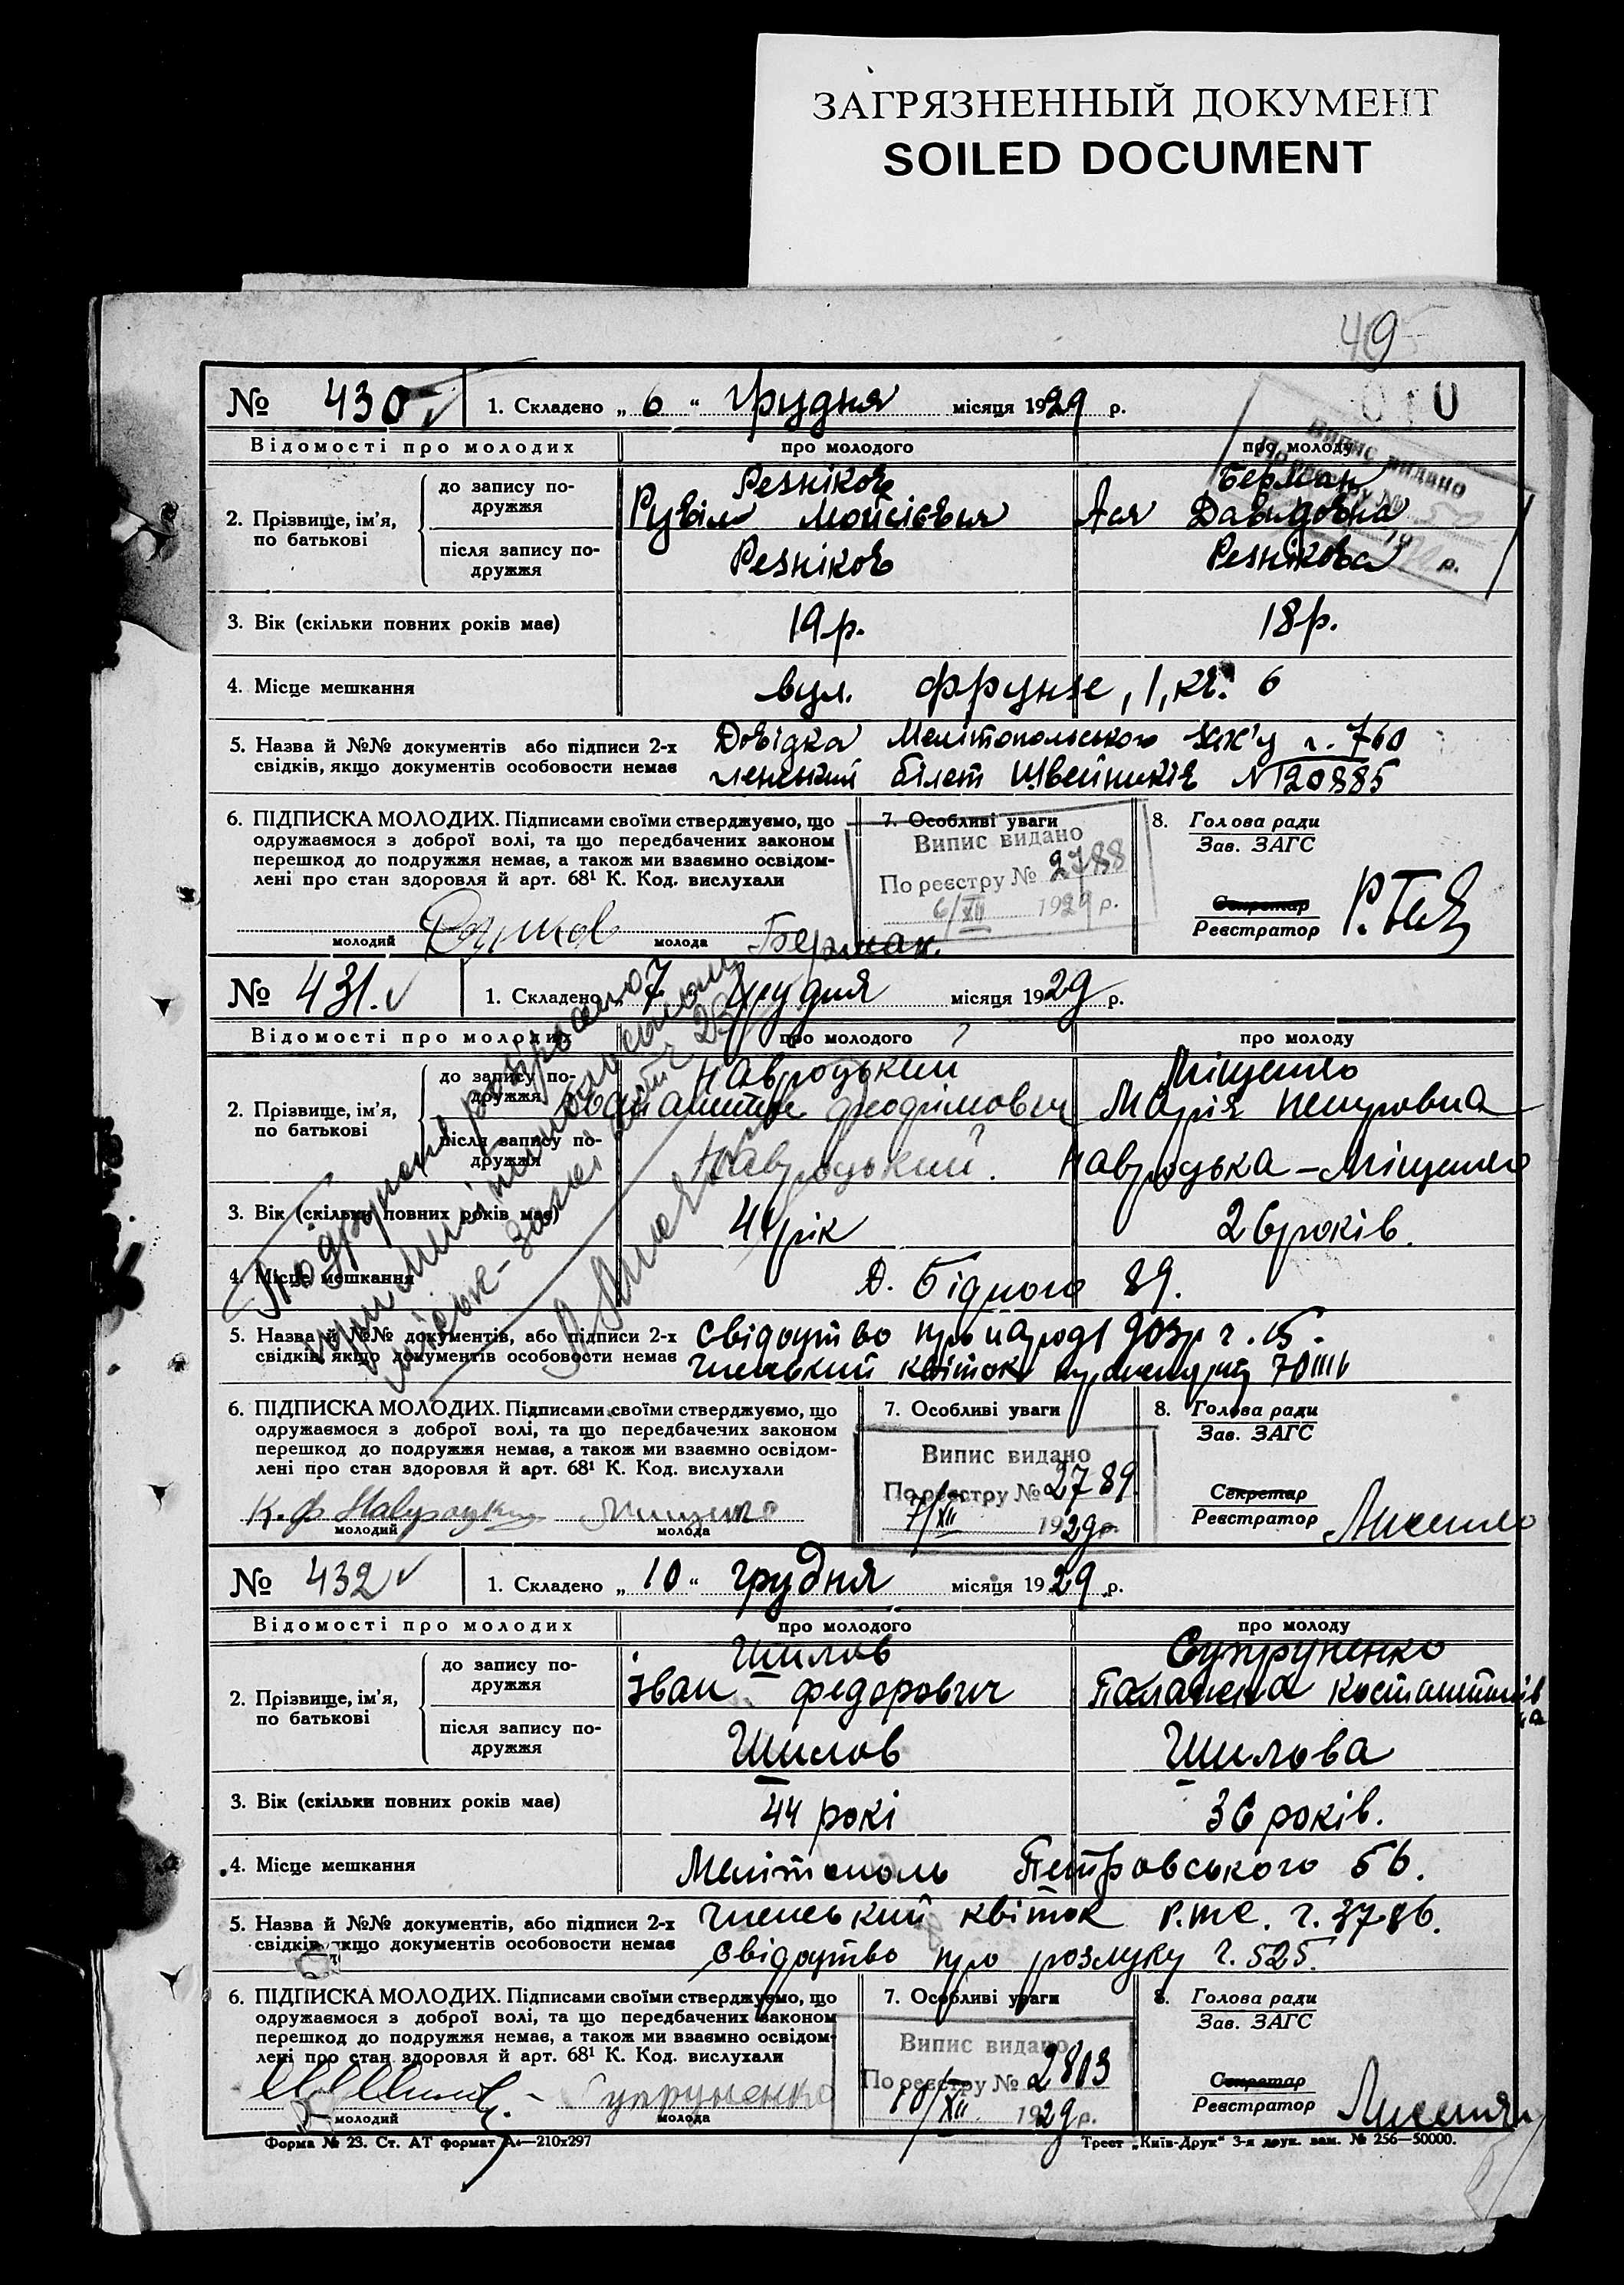 ЗАГРЯЗНЕННЫЙ ДОКУМЕНТ
SOILED DOCUMENT
49
№ 430 1. Складено „ 6 “ грудня місяця 1929 р.
Відомості про молодих про молодого про молоду
Випис видано
По реєстру №
19 р.
2. Прізвище, ім’я, по батькові
до запису по-
дружжя
Резніков
Рувім Мойсієвич
Берман
Ася Давидовна
після запису по-
дружжя
Резніков Резнікова
3. Вік (скільки повних років має) 19 р. 18 р.
4. Місце мешкання вул. Фрунзе, 1, кв. 6
5. Назва й №№ документів або підписи 2-х
свідків, якщо документів особовости немає
Довідка Мелітопольського ч. 760
членський білет Швейників N 120885
6. ПІДПИСКА МОЛОДИХ. Підписами своїми стверджуємо, що
одружаємося з доброї волі, та що передбачених законом
перешкод до подружжя немає, а також ми взаємно освідом-
лені про стан здоровля й арт. 68¹ К. Код. вислухали
молодий молода Берман.
7. Особливі уваги
Випис видано
По реєстру № 2788
6/XII 1929 р.
8. Голова ради
Зав. ЗАГС
Секретар
Реєстратор
№ 431. 1. Складено „ 7 грудня місяця 1929 р.
Відомості про молодих про молодого про молоду
2. Прізвище, ім’я,
по батькові
до запису по-
дружжя
Навроцький
Міщенко
Марія Петровна
після запису по-
дружжя
Навроцький. Навроцька – Міщенко
3. Вік (скільки повних років має) 41 рік 26 років.
4. Місце мешкання Д. Бідного 89.
5. Назва й №№ документів, або підписи 2-х
свідків, якщо документів особовости немає
Свідоцтво про ч. 15.
Членський квіток
6. ПІДПИСКА МОЛОДИХ. Підписами своїми стверджуємо, що
одружаємося з доброї волі, та що передбачених законом
перешкод до подружжя немає, а також ми взаємно освідом-
лені про стан здоровля й арт. 68¹ К. Код. вислухали
К. Ф. Навроцкий Мищенко
молодий молода
7. Особливі уваги
Випис видано
По реєстру № 2789.
7/XII 1929 р.
8. Голова ради
Зав. ЗАГС
Секретар
Реєстратор
Подруження розірвано
№ 432 1. Складено „ 10 “ грудня місяця 1929 р.
Відомості про молодих про молодого про молоду
2. Прізвище, ім’я,
по батькові
до запису по-
дружжя
Шилов
Іван Федорович
Супруненко
після запису по-
дружжя
Шилов Шилова
3. Вік (скільки повних років має) 44 рокі 36 років.
4. Місце мешкання Мелітополь Петровського 56.
5. Назва й №№ документів, або підписи 2-х
свідків якщо документів особовости немає
Членський квіток Р.М.С. ч. 3786.
Свідоцтво про розлуку ч. 525.
6. ПІДПИСКА МОЛОДИХ. Підписами своїми стверджуємо, що
одружаємося з доброї волі, та що передбачених законом
перешкод до подружжя немає, а також ми взаємно освідом-
лені про стан здоровля й арт. 68¹ К. Код. вислухали
Супруненко
молодий молода
7. Особливі уваги
Випис видано
По реєстру № 2803
10/XII 1929 р.
8. Голова ради
Зав. ЗАГС
Секретар
Реєстратор
Форма № 23. Ст. АТ формат А₄—210x297 Трест „Київ-Друк“ 3-я друк. зам. № 256—50000.